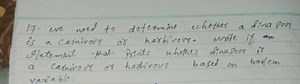 17. we need to determine whether a dinasour
is a carnivors or harbivors. write if an
statement that prints whether dinasour is
a carnivors or herbivors based on boolean
variable.